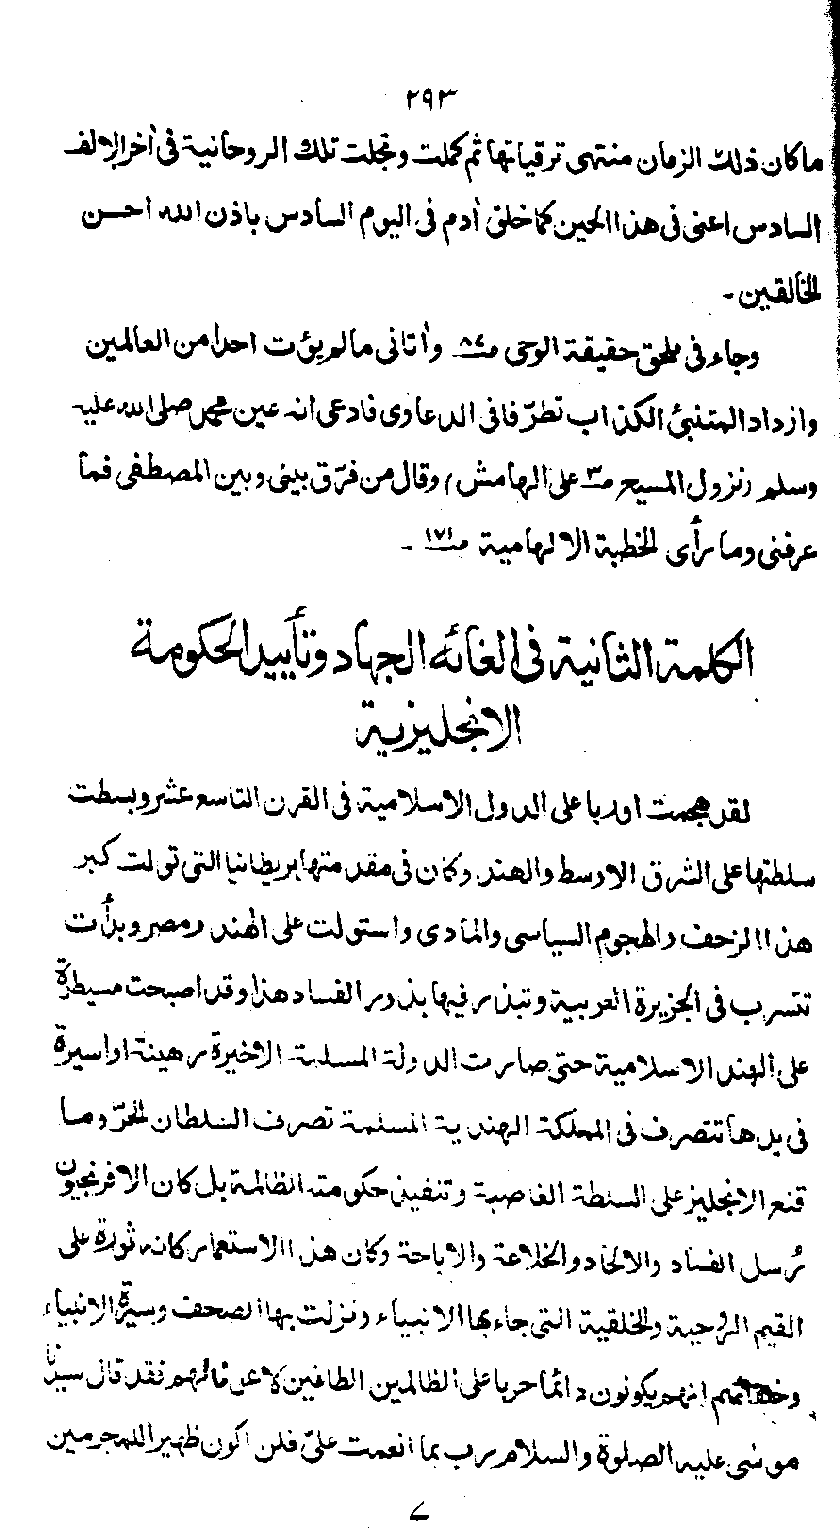 ٢٩٣
ما كان ذلك الزمان منتهى ترقياتها ثم كملت وتجلت تلك الروحانية في آخر الالف
السادس اعنى في هذا الحين كما خلق آدم في اليوم السادس باذن الله احسن
الخالقين۔
وجاء في ملحق حقيقة الوحى وآتانى مالم يؤت احدا من العالمين
وازداد المتنبئ الكذاب تطرّفا في الدعاوى فادعى انه عين محمد صلى الله عليه
وسلم (نزول المسيح ص٣ على الهامش) وقال من فرّق بينى وبين المصطفى فما
عرفنى وما رأى الخطبة الالهامية ص١٧١ ۔
الكلمة الثانية في الغائه الجهاد وتأييد الحكومة
الانجليزية
لقد هجمت اوربا على الدول الاسلامية في القرن التاسع عشر وبسطت
سلطتها على الشرق الاوسط والهند وكان في مقدمتها بريطانيا التى تولت كبر
هذا الزحف والهجوم السياسى والمادى واستولت على الهند ومصر وبدأت
تتسرب في الجزيرة العربية وتبذر فيها بذور الفساد هذا وقد اصبحت مسيطرة
على الهند الاسلامية حتى صارت الدولة المسلمة الاخيرة رهينة او اسيرة
في يدها تتصرف في المملكة الهندية المسلمة تصرف السلطان الحرّ وما
قنع الانجليز على السلطة الغاصبة وتنفيذ حكومته الظالمة بل كان الافرنجيون
رُسل الفساد والالحاد والخلاعة والاباحة وكان هذا الاستعمار كانه ثورة على
القيم الروحية والخلقية التى جاء بها الانبياء ونزلت بها الصحف وسيرة الانبياء
انهم يكونون دائما حربا على الظالمين الطاغين لا عونا لهم فقد قال سيدنا
موسى عليه الصلوة والسلام رب بما انعمت علىّ فلن اكون ظهيرا للمجرمين